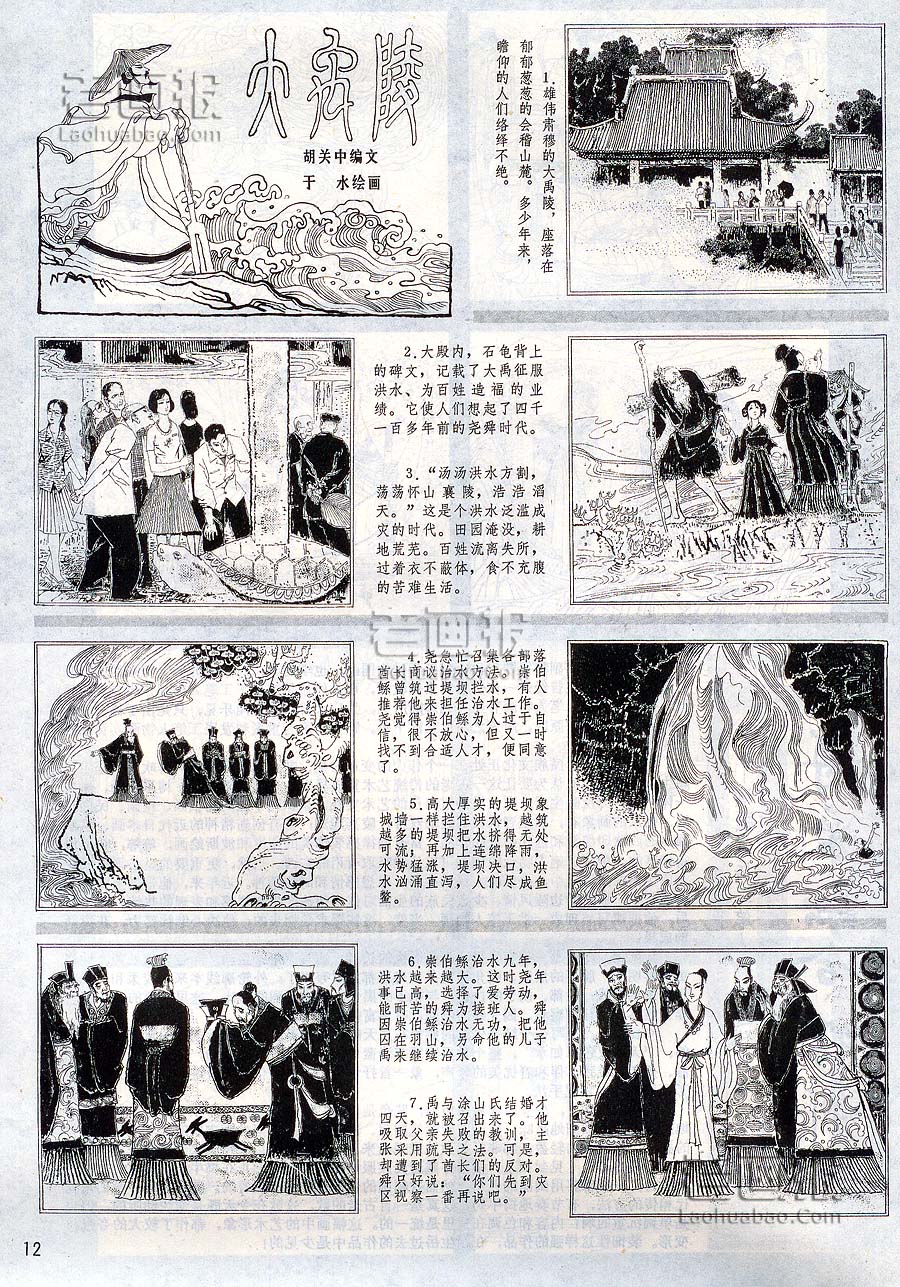 大禹陵
胡关中编文
于 水绘画
1.雄伟肃穆的大禹陵，座落在
郁郁葱葱的会稽山麓。多少年来，
瞻仰的人们络绎不绝。
2.大殿内，石龟背上
的碑文，记载了大禹征服
洪水、为百姓造福的业
绩。它使人们想起了四千
一百多年前的尧舜时代。
3.“汤汤洪水方割，
荡荡怀山襄陵，浩浩滔
天。”这是个洪水泛滥成
灾的时代。田园淹没，耕
地荒芜。百姓流离失所，
过着衣不蔽体，食不充腹
的苦难生活。
4.尧急忙召集各部落
首长商议治水方法。崇伯
鲧曾筑过堤坝拦水，有人
推荐他来担任治水工作。
尧觉得崇伯鲧为人过于自
信，很不放心，但又一时
找不到合适人才，便同意
了。
5.高大厚实的堤坝象
城墙一样拦住洪水，越筑
越多的堤坝把水挤得无处
可流；再加上连绵降雨，
水势猛涨，堤坝决口，洪
水汹涌直泻，人们尽成鱼
鳖。
6.崇伯鲧治水九年，
洪水越来越大。这时尧年
事已高，选择了爱劳动，
能耐苦的舜为接班人。舜
因崇伯鲧治水无功，把他
囚在羽山，另命他的儿子
禹来继续治水。
7.禹与涂山氏结婚才
四天，就被召出来了。他
吸取父亲失败的教训，主
张采用疏导之法。可是，
却遭到了酋长们的反对。
舜只好说：“你们先到灾
区视察一番再说吧。”
12
老画报
Laohuabao.Com
老画报
Laohuabao.Com
老画报
Laohuabao.Com